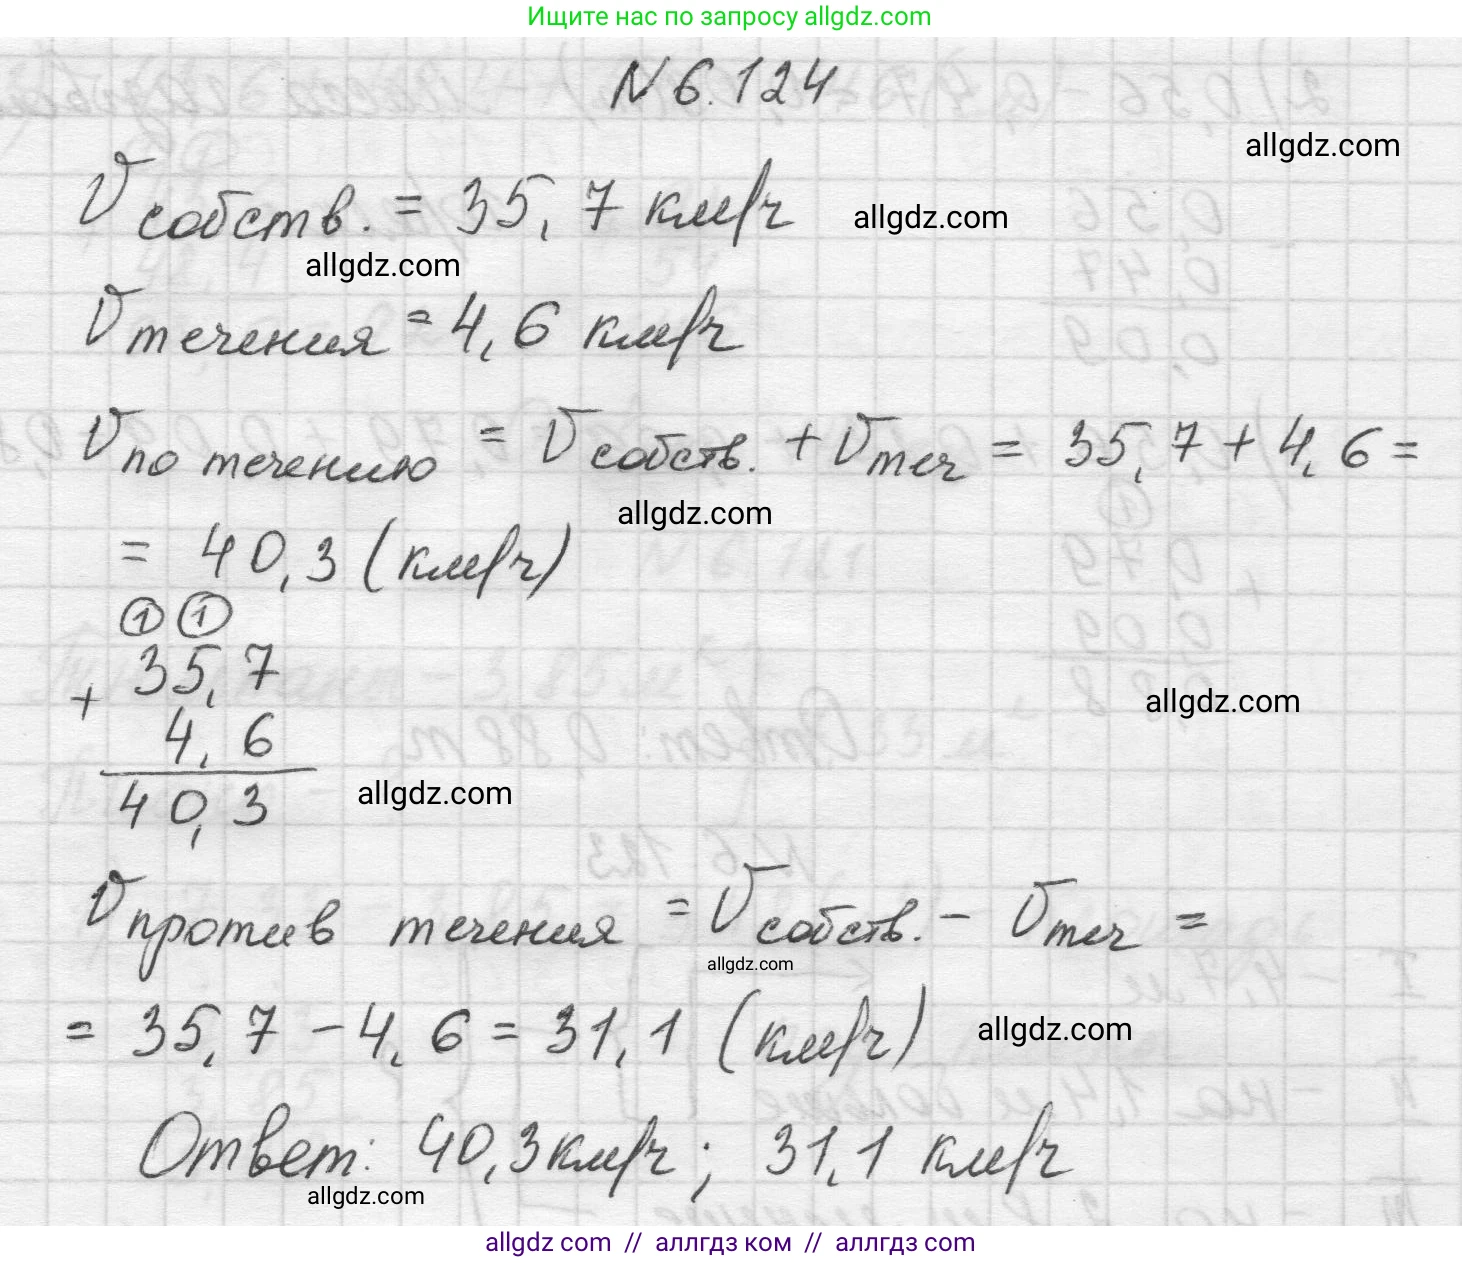 Ищите нас по запросу allgdz.com
N 6.124
allgdz.com
Vсобств. = 35,7 км/ч allgdz.com
allgdz.com
Vтечения = 4,6 км/ч
Vпо течению = Vсобств. + Vтеч = 35,7 + 4,6 =
allgdz.com
= 40,3 (км/ч)
1 1
35,7
+
4,6
allgdz.com
40,3
allgdz.com
Vпротив течения = Vсобств. - Vтеч =
allgdz.com
= 35,7 - 4,6 = 31,1 (км/ч) allgdz.com
Ответ: 40,3 км/ч; 31,1 км/ч
allgdz.com
allgdz com // аллгдз ком // аллгдз com